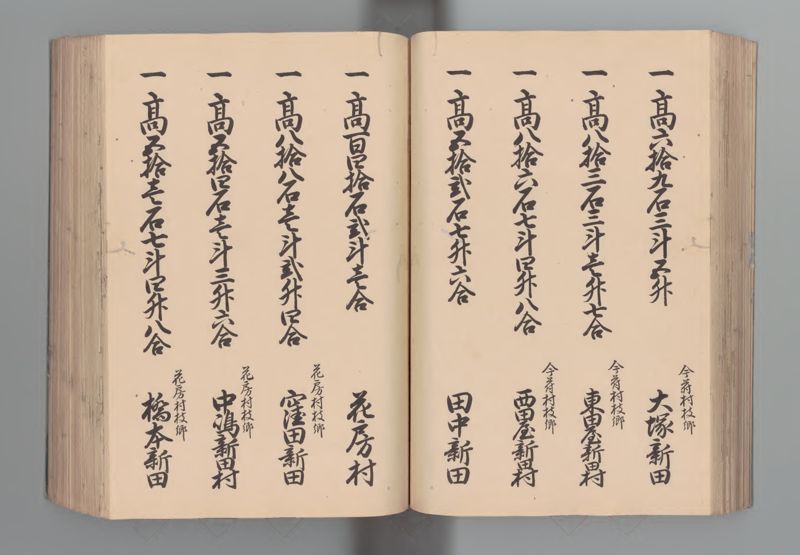 一 高六拾九石三斗五升
今荷村枝郷
大塚新田
一 高八拾三石三斗壱升七合
今荷村枝郷
東田屋新田村
一 高八拾六石七斗四升八合
今荷村枝郷
西田屋新田村
一 高五拾弐石七升六合
田中新田
一 高百四拾石弐斗壱合
花房村
一 高八拾八石壱斗弐升四合
花房村枝郷
窪田新田
一 高五拾四石壱斗三升六合
花房村枝郷
中嶋新田村
一 高五拾壱石七斗四升八合
花房村枝郷
橋本新田